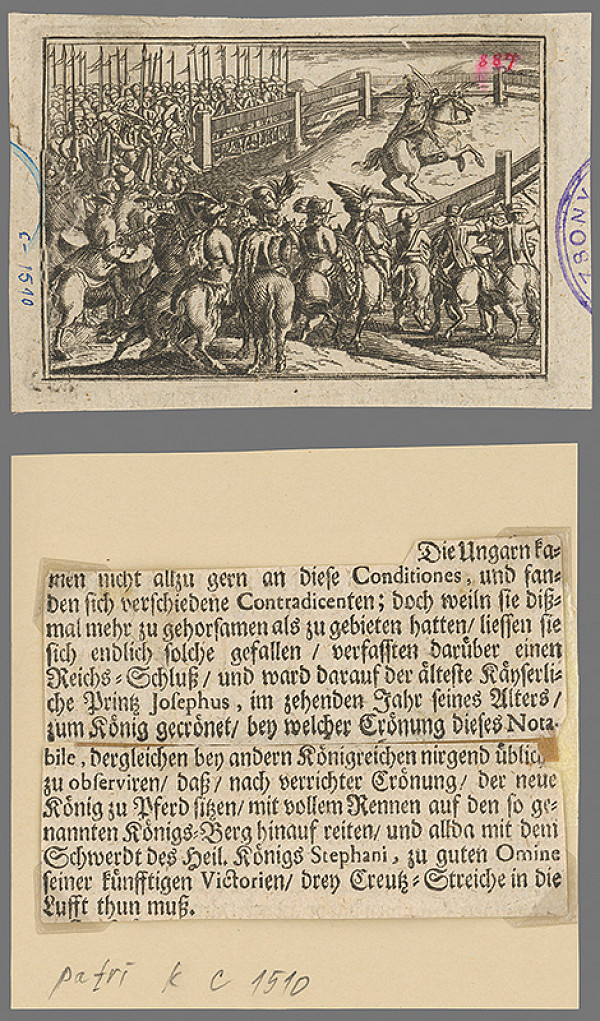 887
c= 1510
ANOBZ
Die Ungarn ka-
men nicht allzu gern an diese Conditiones, und fan-
den sich verschiedene Contradicenten; doch weiln sie diß-
mal mehr zu gehorsamen als zu gebieten hatten/ liessen sie
sich endlich solche gefallen / verfassten darüber einen
Reichs-Schluß/ und ward darauf der älteste Käyserli-
che Printz Josephus, im zehenden Jahr seines Alters/
zum König gecrönet/ bey welcher Crönung dieses Nota-
bile, dergleichen bey andern Königreichen nirgend üblich
zu observiren/ daß/ nach verrichter Crönung/ der neue
König zu Pferd sitzen/ mit vollem Rennen auf den so ge-
nannten Königs-Berg hinauf reiten/ und allda mit dem
Schwerdt des Heil. Königs Stephani, zu guten Omine
seiner künfftigen Victorien/ drey Creutz-Streiche in die
Lufft thun muß.
patří k C 1510